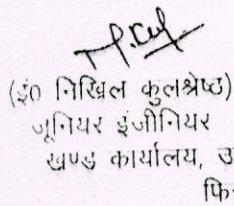 (इं0 निखिल कुलश्रेष्ठ)
जूनियर इंजीनियर
खण्ड कार्यालय, उ
फि